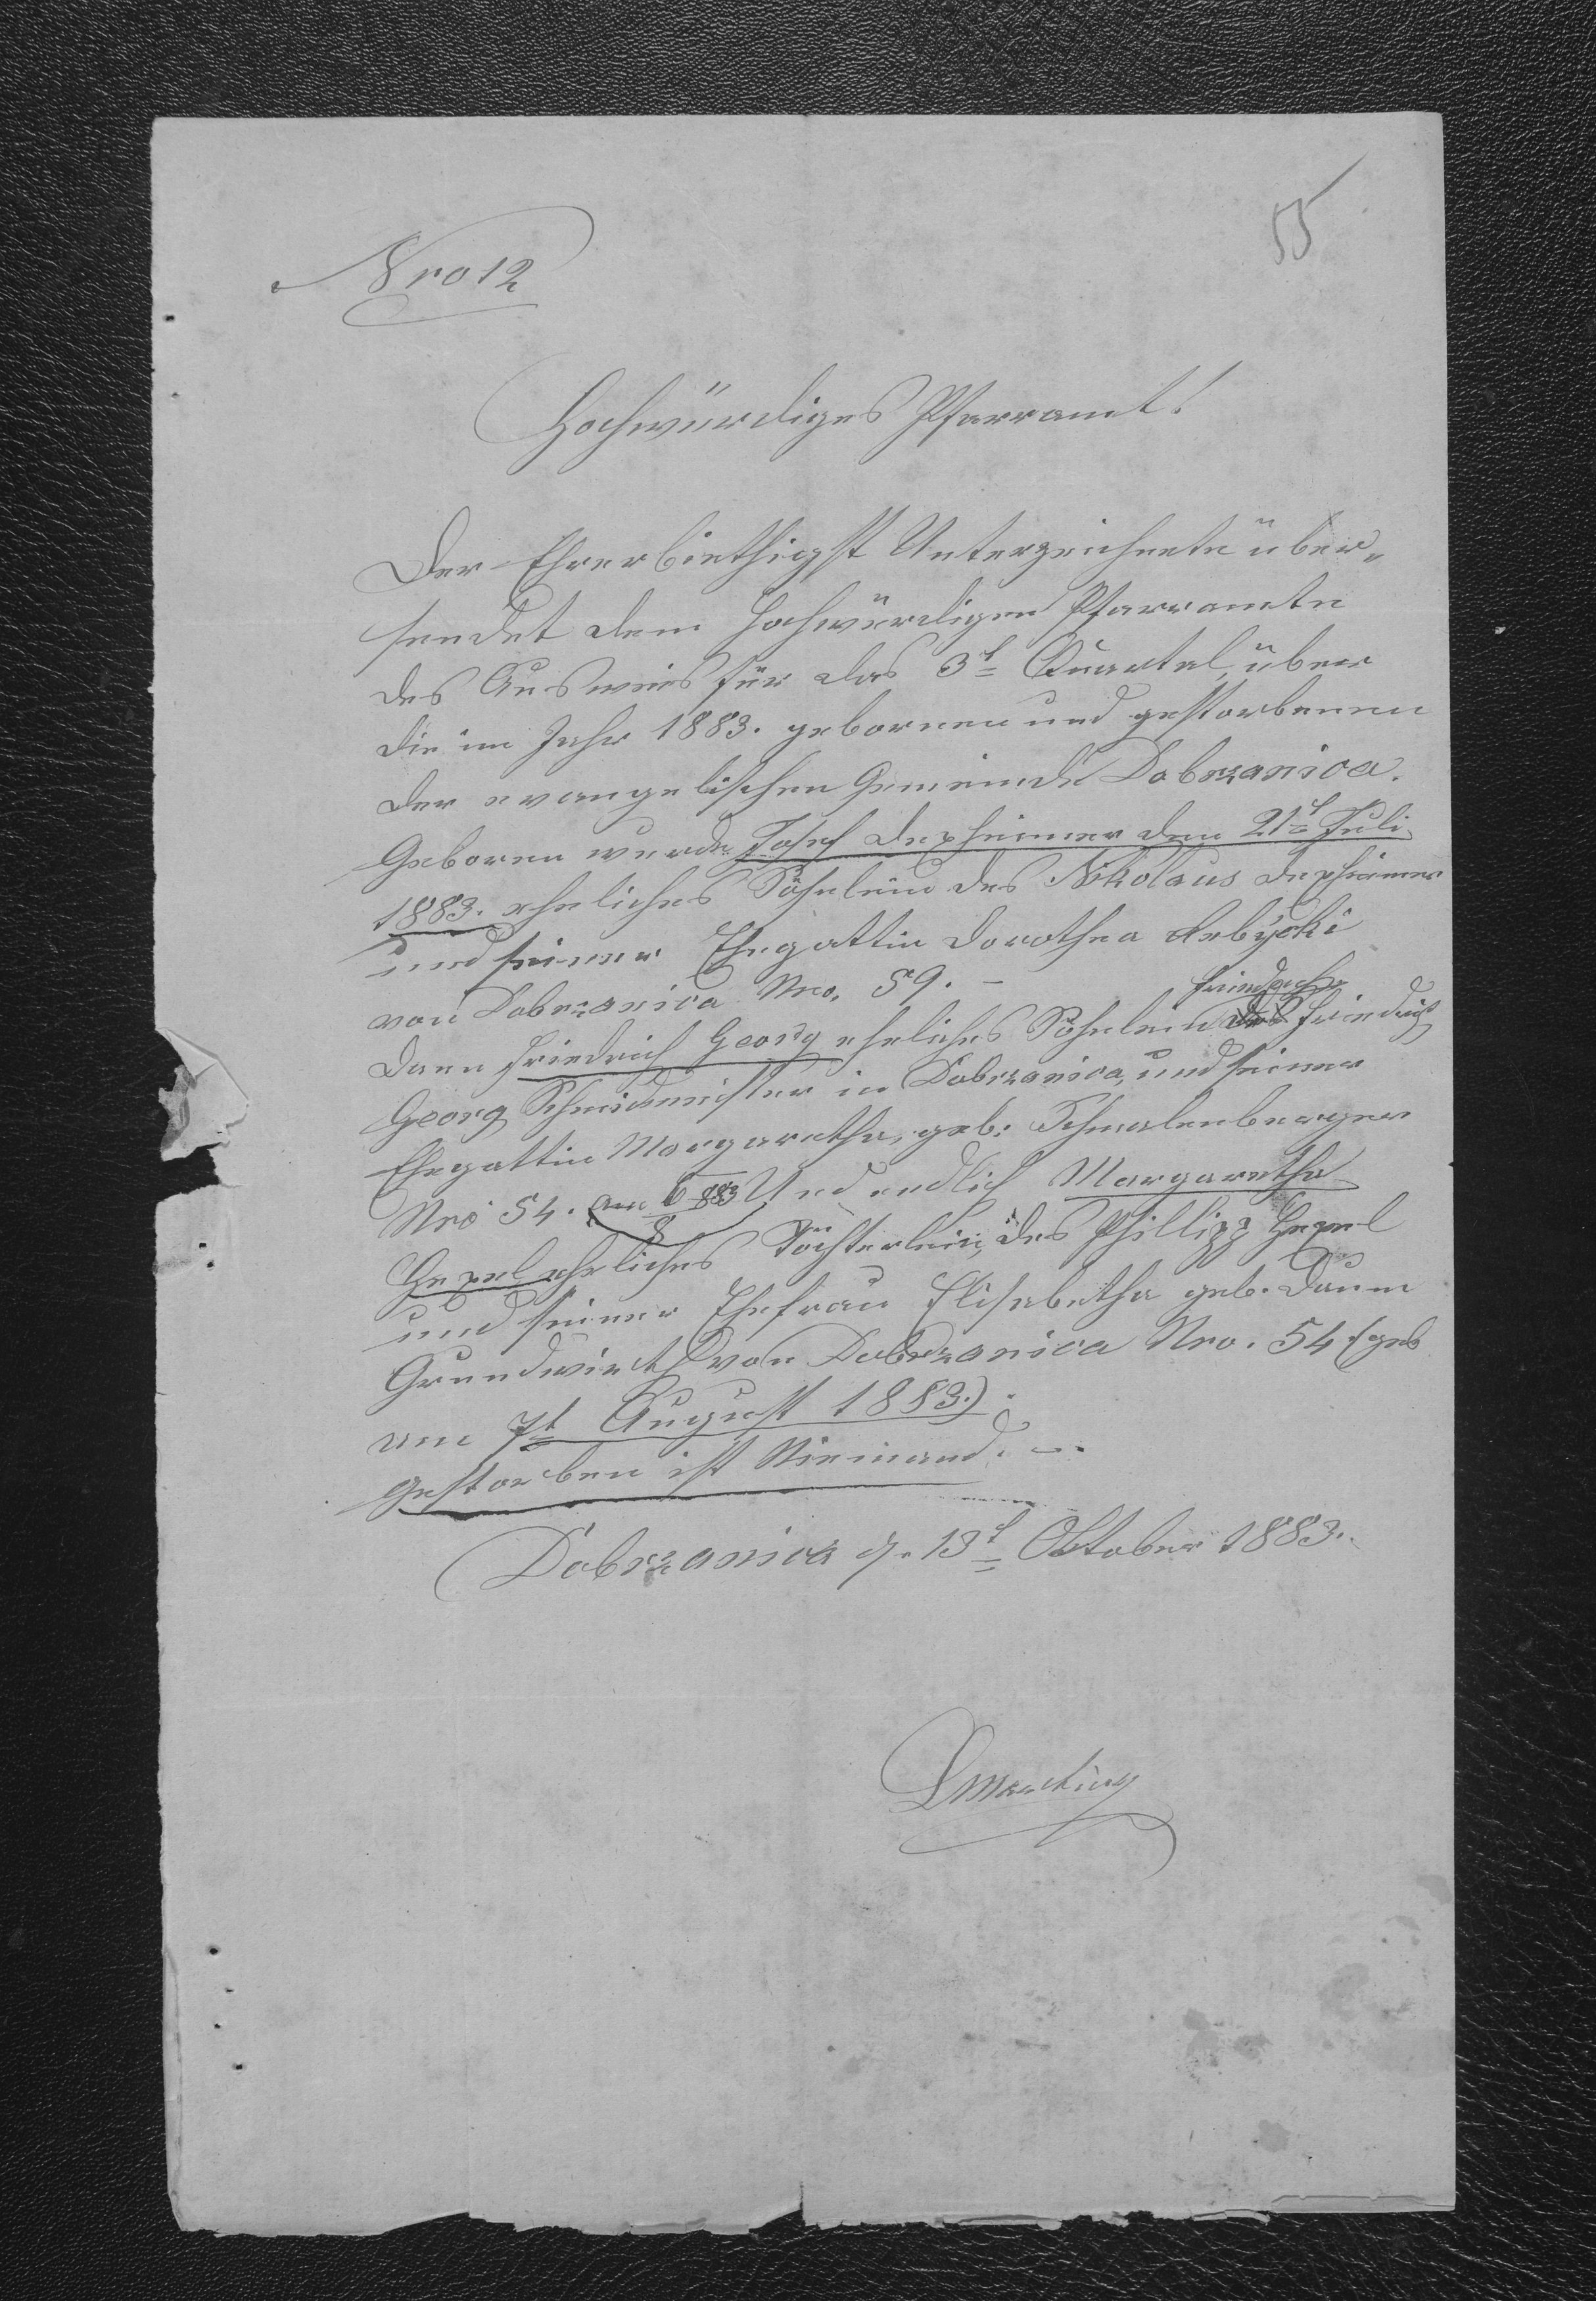 55
Nro 12
Hochwürdiges Pfarramt!
Der Ehrerbiethigst Unterzeichnete über„
sendet dem Hochwürdigen Pfarramte
des Ausweis für das 3t Quartal, über
die im Jahr 1883. gebornen und gestorbenen
der evangelischen Gemeinde Dobrzanica.
Geboren wurde Josef Dexheimer den 21t Juli
1883. eheliches Söhnlein des Nikolaus Dexheimer
und seiner Ehegattin Dorothea
von Dobrzanica Nro. 59. –
Dann Friedrich Georg eheliches Söhnlein des Friedrich
Georg Schmidmeister in Dobrzanica, und seiner
Ehegattin Margaretha, geb: Schmalenberger
Nro 54. am 6/8 883 Und endlich Margaretha
Hexel eheliches Töchterlein, des Phillipp Hexel
und seiner Ehefrau Elisabetha geb. Daum
Grundwirth von Dobrzanica Nro. 54 (geb
am 7t August 1883.).
Gestorben ist Niemand. –.
Dobrzanica d. 13t Oktober 1883.